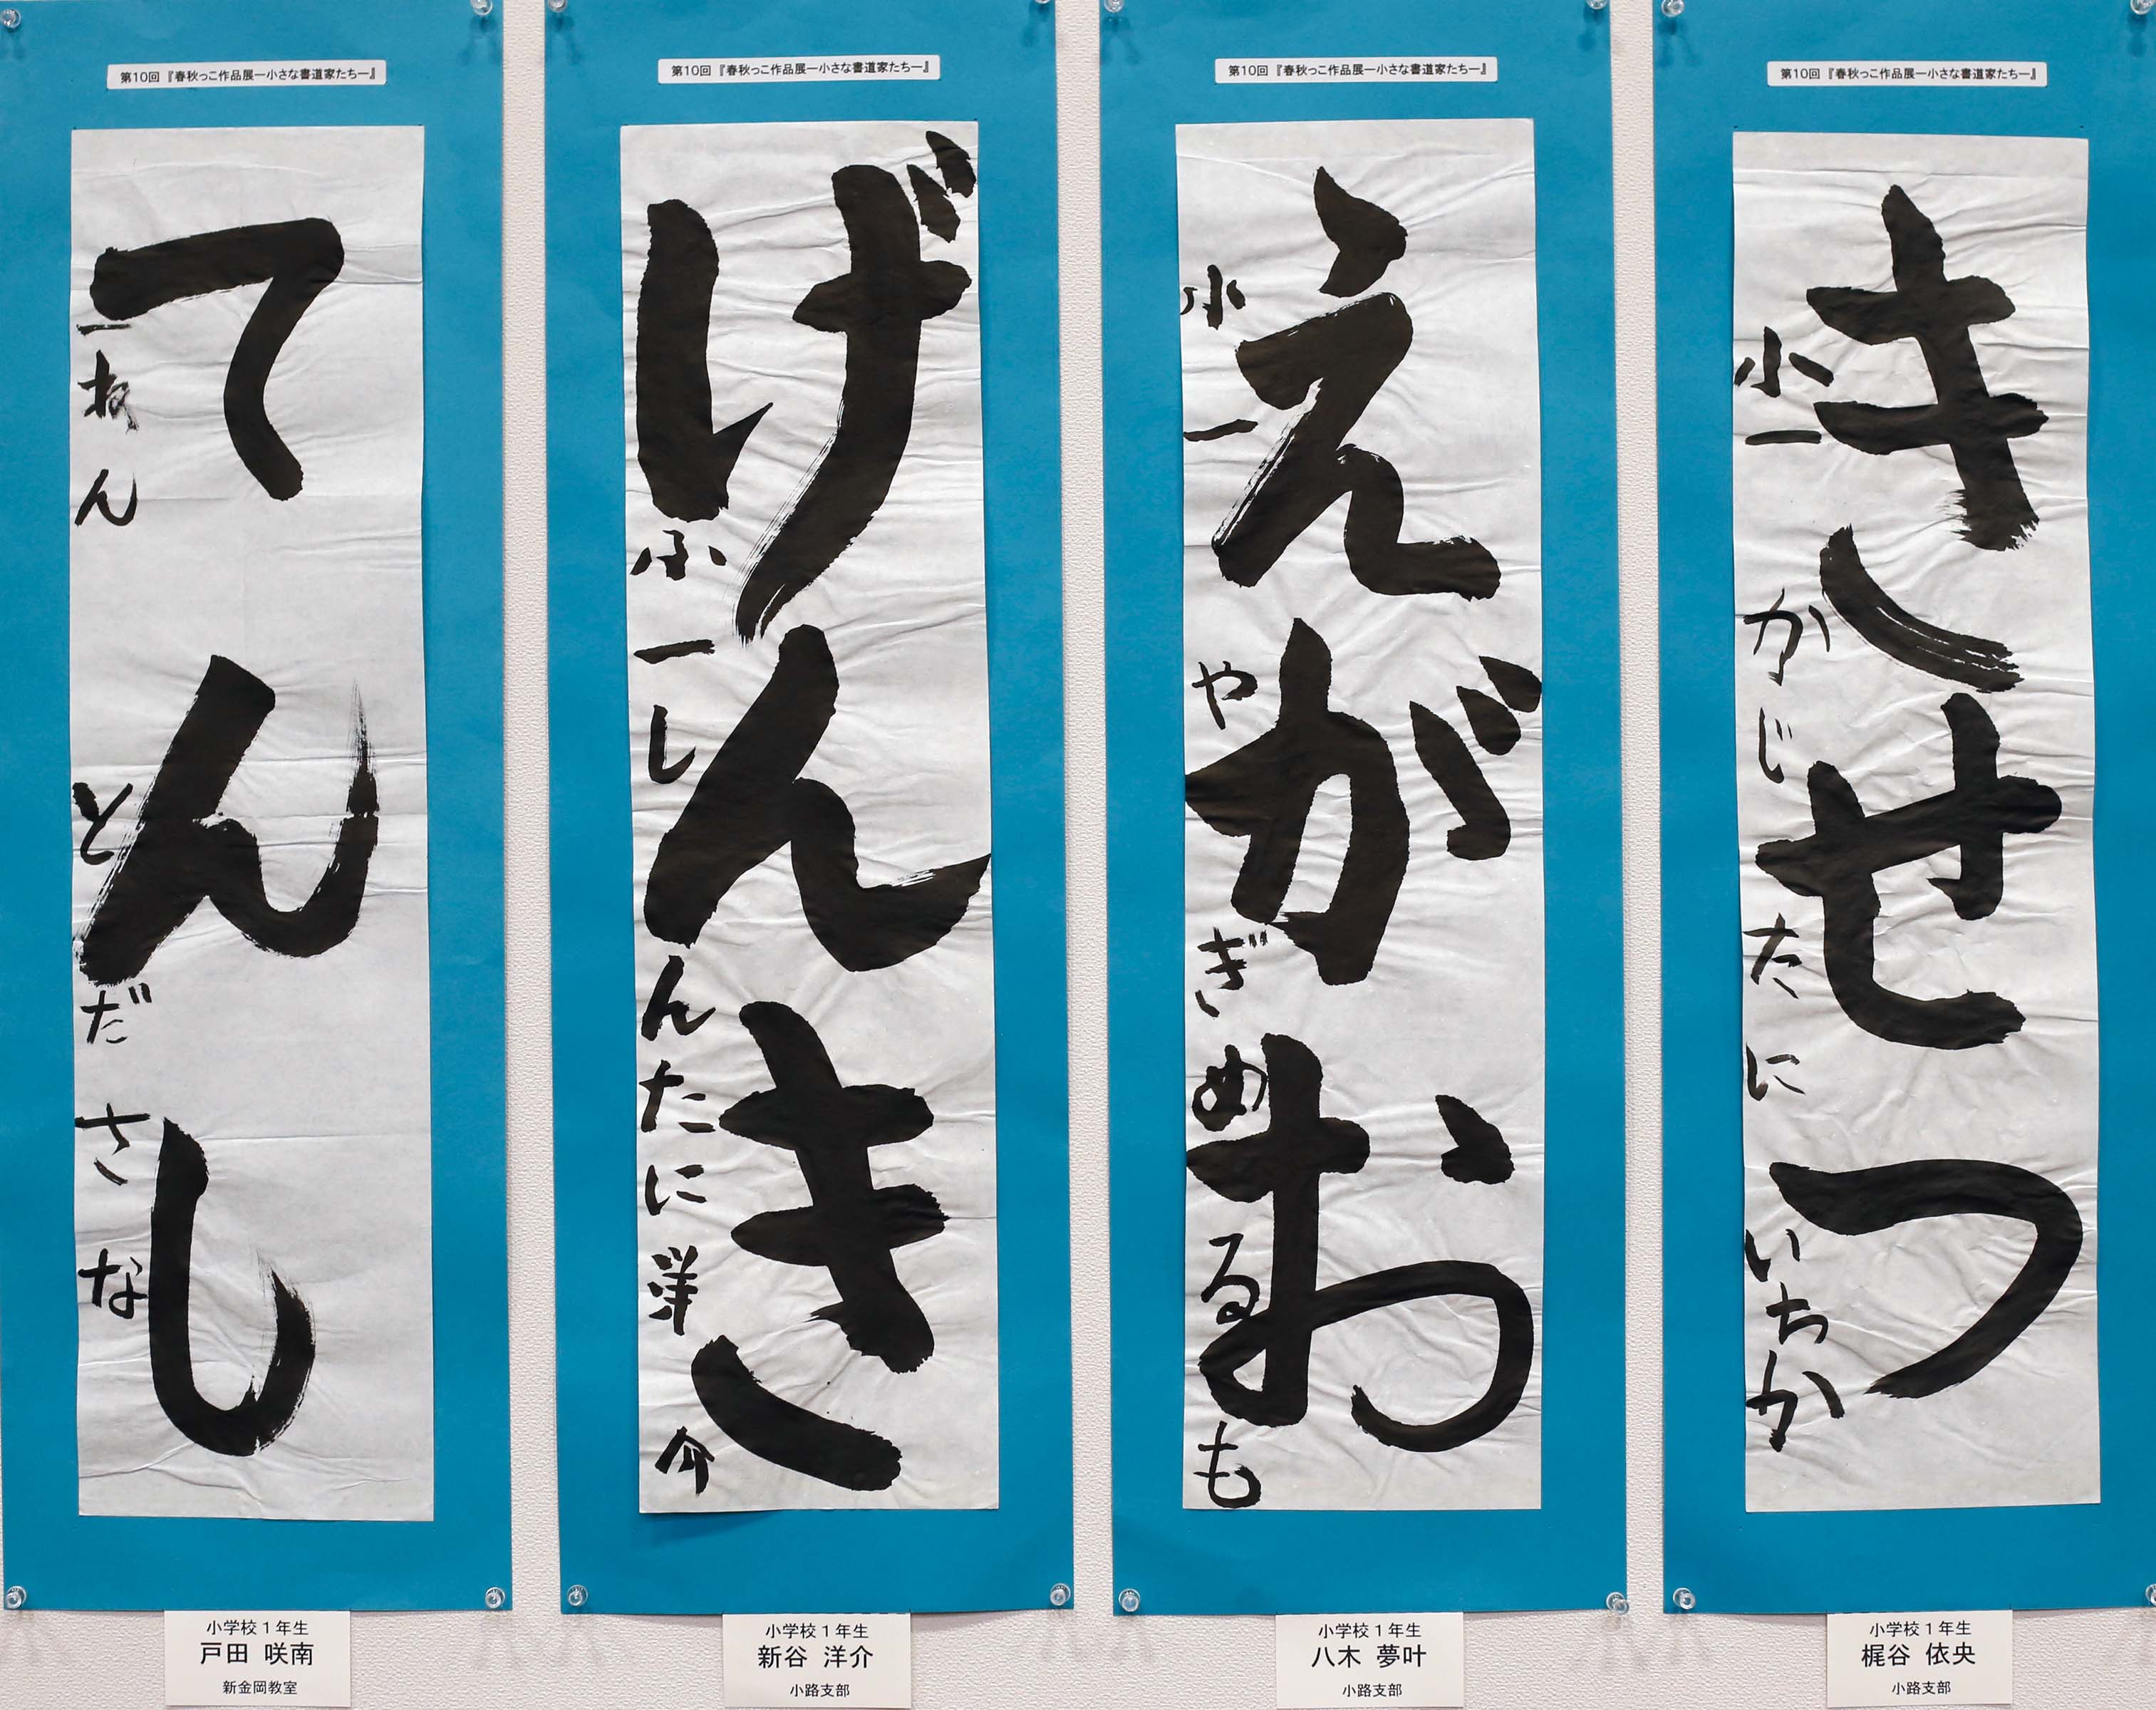 第10回『春秋っこ作品展ー小さな書道家たちー』
てんし
一ねん とださな
小学校1年生
戸田 咲南
新金岡教室
第10回『春秋っこ作品展ー小さな書道家たちー』
げんき
小一 しんたに洋介
小学校1年生
新谷 洋介
小路支部
第10回『春秋っこ作品展ー小さな書道家たちー』
えがお
小一 やぎめるも
小学校1年生
八木 夢叶
小路支部
第10回『春秋っこ作品展ー小さな書道家たちー』
きせつ
小一 かじたにいちか
小学校1年生
梶谷 依央
小路支部